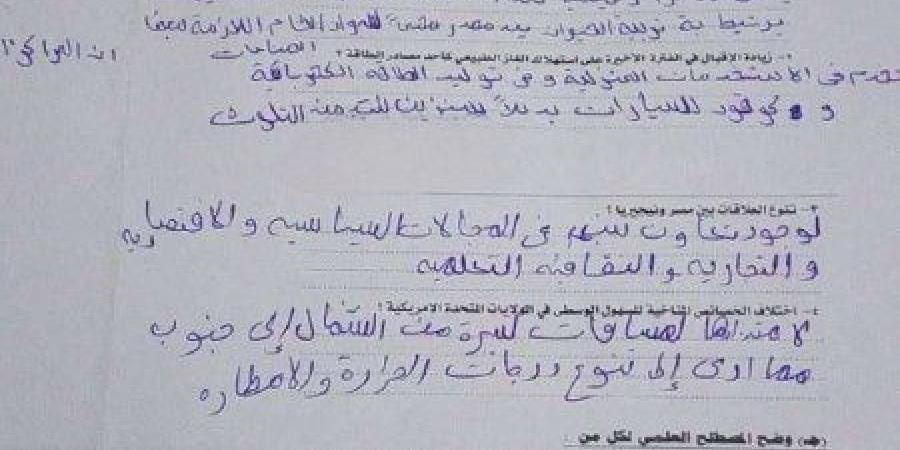 يرتبط به توجد الحيوان يعد مصدر للمواد الخام اللازمة لبعض
الصناعات
٢- زيادة الإقبال في الفترة الأخيرة على استهلاك الغاز الطبيعي كأحد مصادر الطاقة ؟
تخدم في الاستخدمات المنزلية وفي توليد الطاقة الكهربائية
و كوقود للسيارات بدلاً للبنزين للحد من التلوث
٣- تنوع العلاقات بين مصر ونيجيريا ؟
لوجود تعاون بينهم في المجالات السياسية والاقتصادية
و التجارية والثقافية التعليمية
٤- اختلاف الخصائص المناخية للسهول الوسطى في الولايات المتحدة الامريكية ؟
لامتدادها لمسافات كبيرة من الشمال إلى جنوب
مما ادى إلى تنوع درجات الحرارة والامطاره
(جـ) وضح المصطلح العلمي لكل من :